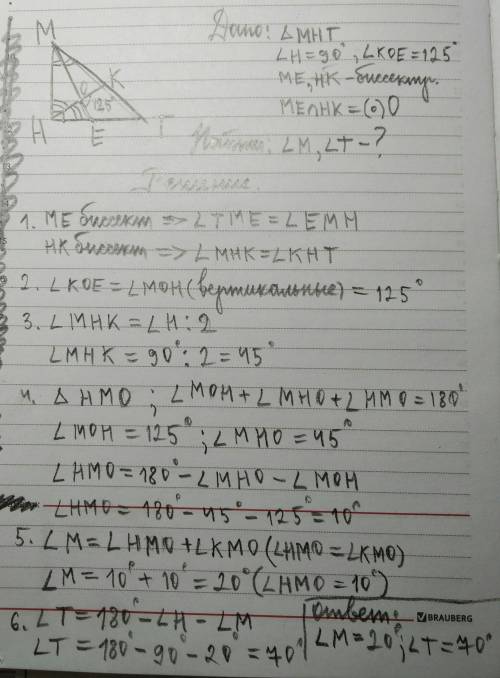 Дано: △МНТ
∠H=90°, ∠KOE=125°
ME, HK-биссектр.
ME∩HK=(·)O
Найти: ∠M, ∠T-?
M
K
O
125°
H
E
T
Решение.
1. ME биссект => ∠TME=∠EMH
HK биссект => ∠MHK=∠KHT
2. ∠KOE=∠MOH(вертикальные)=125°
3. ∠MHK=∠H:2
∠MHK=90°:2=45°
4. △HMO; ∠MOH+∠MHO+∠HMO=180°
∠MOH=125°; ∠MHO=45°
∠HMO=180°-∠MHO-∠MOH
∠HMO=180°-45°-125°=10°
5. ∠M=∠HMO+∠KMO(∠HMO=∠KMO)
∠M=10°+10°=20°(∠HMO=10°)
6. ∠T=180°-∠H-∠M
∠T=180°-90°-20°=70°
Ответ:
∠M=20°; ∠T=70°
BRAUBERG